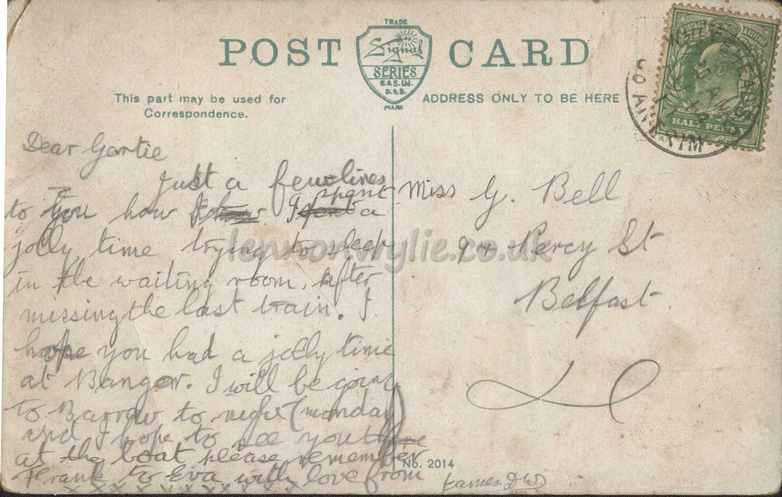 TRADE
POST CARD
Signal
SERIES
E. & S. LD.
D. & B.
MARK
This part may be used for
Correspondence.
ADDRESS ONLY TO BE HERE
HALF PENNY
WHITEABBEY
CO ANTRIM
Dear Gertie
Just a few lines
to you how I spent a
jolly time trying to sleep
in the waiting room, after
missing the last train. I
hope you had a jolly time
at Bangor. I will be going
to Barrow to night (monday)
and I hope to see you
at the boat please remember
Frank to Eva with love from
James D W
x x x x x x x x x
Miss G. Bell
94 Percy St
Belfast.
lennonwylie.co.uk
No. 2014